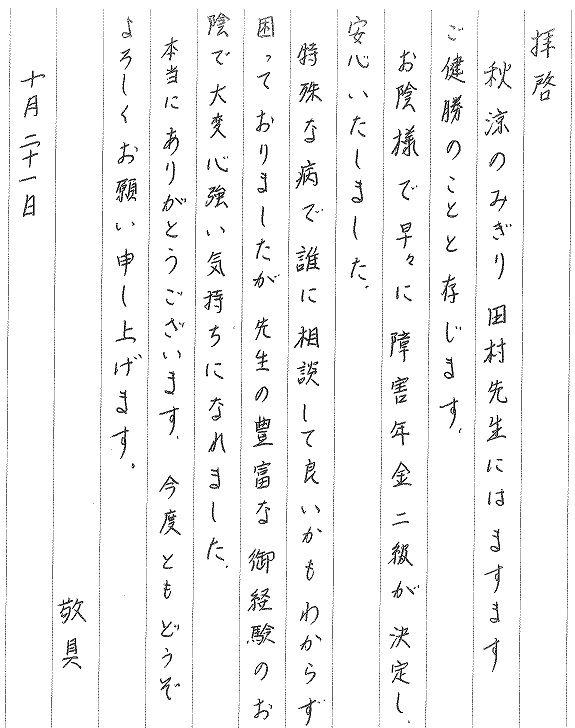 拝啓
秋涼のみぎり田村先生にはますます
ご健勝のことと存じます。
お陰様で早々に障害年金二級が決定し、
安心いたしました。
特殊な病で誰に相談して良いかもわからず
困っておりましたが先生の豊富な御経験のお
陰で大変心強い気持ちになれました。
本当にありがとうございます。今度ともどうぞ
よろしくお願い申し上げます。
敬具
十月二十一日